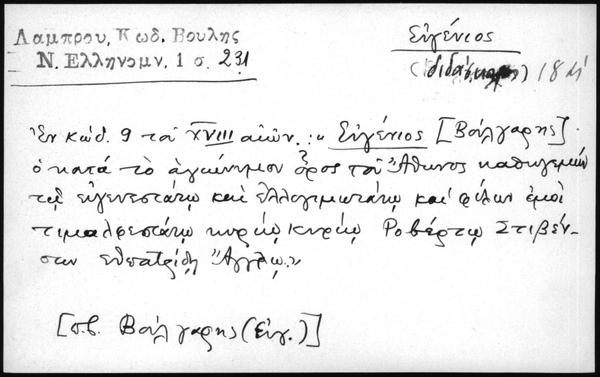 Λαμπρου, Κωδ. Βουλης
Ν. Ελληνομν. 1 σ. 231
Εὐγένιος
(διδάσκαλος) 18 αἰ
Ἐν κώδ. 9 τοῦ XVIII αἰῶν. : « Εὐγένιος [Βούλγαρης]
ὁ κατὰ τὸ ἁγιώνυμον ὄρος τοῦ Ἄθωνος καθηγεμὼν
τῷ εὐγενεστάτῳ καὶ ἐλλογιμωτάτῳ καὶ φίλων ἐμοὶ
τιμαλφεστάτῳ κυρίῳ κυρίῳ Ροβέρτῳ Στιβέν-
σων εὐπατρίδῃ Ἄγγλῳ.»
[π.β. Βούλγαρης (Εὐγ.)]